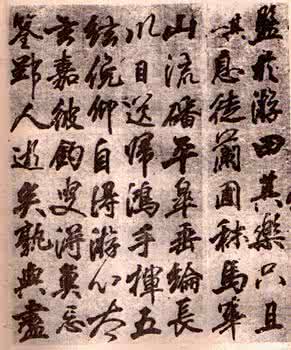 盤於游田其樂只且
其息徒蘭圃秣馬華
山流磻平皋垂綸長
川目送歸鴻手揮五
絃俛仰自得游心太
玄嘉彼釣叟得魚忘
筌郢人逝矣孰與盡